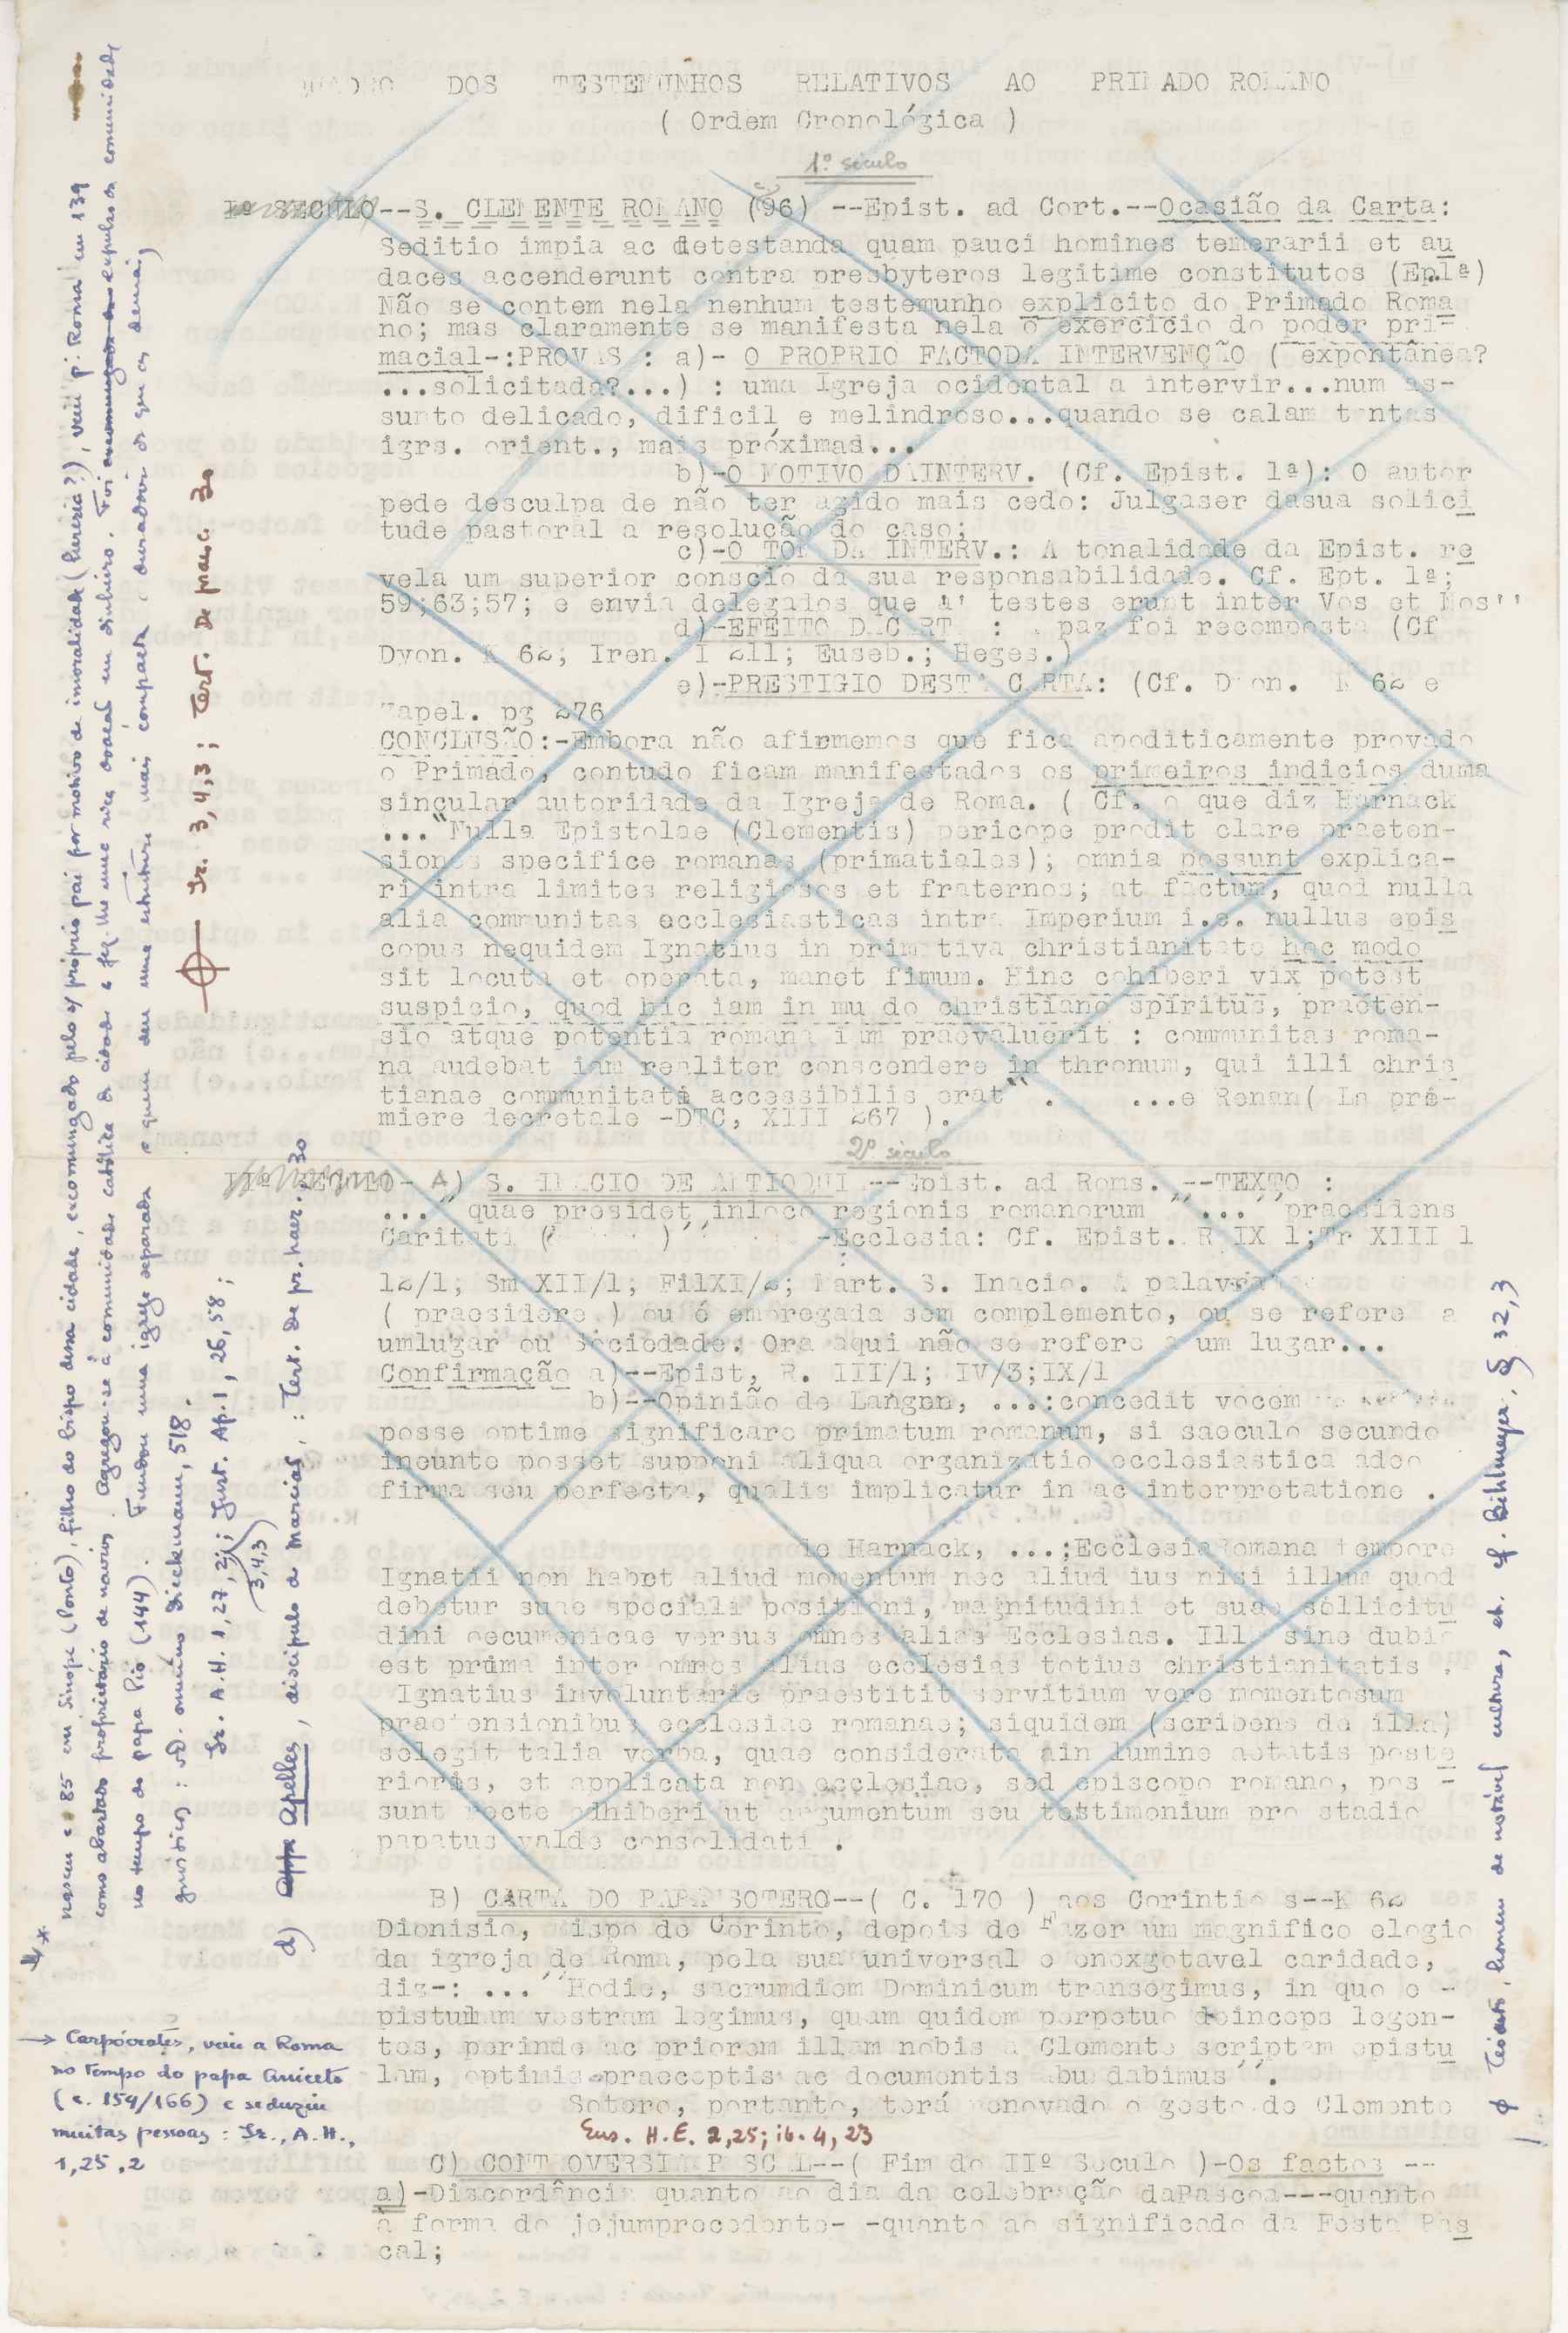 DOS TESTEMUNHOS RELATIVOS AO PRIMADO ROMANO
( Ordem Cronológica )
1º século
Iº SECULO--S. CLEMENTE ROMANO (96) --Epist. ad Cort.--Ocasião da Carta:
Seditio impia ac detestanda quam pauci homines temerarii et au
daces accenderunt contra presbyteros legitime constitutos (Ep1ª)
Não se contem nela nenhum testemunho explicito do Primado Roma
no; mas claramente se manifesta nela o exercício do poder pri-
macial-:PROVAS : a)- O PROPRIO FACTODA INTERVENÇÃO ( expontânea?
...solicitada?...) : uma Igreja ocidental a intervir...num as-
sunto delicado, dificil e melindroso...quando se calam tantas
igrs. orient., mais próximas...
b)-O MOTIVO DAINTERV. (Cf. Epist. 1ª): O autor
pede desculpa de não ter agido mais cedo: Julgaser dasua solici
tude pastoral a resolução do caso;
c)-O TOM DA INTERV.: A tonalidade da Epist. re
vela um superior conscio da sua responsabilidade. Cf. Ept. 1ª;
59;63;57; e envia delegados que '' testes erunt inter Vos et Nos''
d)-EFEITO DACART : paz foi recomposta (Cf
Dyon. K 62; Iren. I 211; Euseb.; Heges.)
e)-PRESTIGIO DESTA CARTA: (Cf. Dion. K 62 e
Kapel. pg 276
CONCLUSÃO:-Embora não afirmemos que fica apoditicamente provado
o Primado, contudo ficam manifestados os primeiros indicios duma
singular autoridade da Igreja de Roma. ( Cf. o que diz Harnack
..."Nulla Epistolae (Clementis) pericope prodit clare praeten-
siones specifice romanas (primatiales); omnia possunt explica-
ri intra limites religiosos et fraternos; at factum, quod nulla
alia communitas ecclesiasticas intra Imperium i.e. nullus epis
copus nequidem Ignatius in primitiva christianitate hoc modo
sit locuta et operata, manet fimum. Hinc cohiberi vix potest
suspicio, quod hic iam in mu do christiano spiritus, praeten-
sio atque potentia romana iam praevaluerit : communitas roma-
na audebat iam realiter conscendere in thronum, qui illi chris
tianae communitati accessibilis erat" . ...e Renan( La pre-
miere decretale -DTC, XIII 267 ).
2º século
IIº SECULO- A) S. INACIO DE ANTIOQUI --Epist. ad Roms. --TEXTO :
... quae presidet inloco regionis romanorum '' ... '' praesidens
Caritati ( )'' -Ecclesia: Cf. Epist. R IX 1;Tr XIII 1
12/1; Sm XII/1; FilXI/2; Mart. S. Inacio. A palavra
( praesidere ) ou é empregada sem complemento, ou se refere a
umlugar ou Sociedade. Ora aqui não se refere a um lugar...
Confirmação a)--Epist, R. III/1; IV/3;IX/1
b)--Opinião de Langen, ...:concedit vocem
posse optime significare primatum romanum, si saeculo secundo
ineunte posset supponi aliqua organizatio ecclesiastica adeo
firma seu perfecta, qualis implicatur in ac interpretatione .
de Harnack, ...;EcclesiaRomana tempore
Ignatii non habet aliud momentum nec aliud ius nisi illum quod
debetur suae speciali positioni, magnitudini et suae sollicitu
dini oecumenicae versus omnes alias Ecclesias. Illa sine dubio
est prima inter omnes alias ecclesias totius christianitatis .
Ignatius involuntarie praestitit servitium vere momentosum
praetensionibus ecclesiae romanae; siquidem (scribens de illa)
selegit talia verba, quae considerata ain lumine aetatis poste
rioris, et applicata non ecclesiae, sed episcopo romano, pos -
sunt recte adhiberi ut argumentum seu testimonium pro stadio
papatus valde consolidati .
B) CARTA DO PAPA SOTERO--( C. 170 ) aos Corintio s--K 62
Dionisio, Bispo de Corinto, depois de Fazer um magnifico elogio
da igreja de Roma, pela sua universal e enexgotavel caridade,
diz-: ... ''Hodie, sacrumdiem Dominicum transegimus, in quo e -
pistulam vestram legimus, quam quidem perpetuo deinceps legen-
tes, perinde ac priorem illam nobis a Clemente scriptam epistu
lam, optimis praeceptis ac documentis abundabimus''.
Sotero, portanto, terá renovado o gesto de Clemente
Eus. H.E. 2,25; ib. 4,23
C) CONTROVERSIA P SC L--( Fim do IIº Seculo )-Os factos --
a)-Discordância quanto ao dia da celebração daPascoa---quanto
à forma do jejumprecedente- -quanto ao significado da Festa Pas
cal;
nasceu c. 85 em Sinope (Ponto), filho do bispo dessa cidade, excomungado pelo s/ próprio pai por motivo de imoralidade (heresia?), veiu p. Roma em 139
como abastado proprietário de navios. Agregou-se à comunidade católica da cidade e fez-lhe uma rica doação em dinheiro. Foi expulso da comunidade
no tempo do papa Pio (144). Fundou uma igreja separada a quem deu uma estrutura mais compacta e duradoira do que as demais
gnósticas: vD. omnino Dieckmann, 518.
Ir. A.H. 1,27,2; Just. Ap. 1, 26, 58;
3,4,3
Ir. 3,4,3; Tert. De praesc. 30
d) Apelles, discípulo de Marcião,: Tert. De pr. haer., 30
→ Carpócrates, veiu a Roma
no tempo do papa Aniceto
(c. 154/166) e seduziu
muitas pessoas: Ir., A.H.,
1,25,2
homem de notável cultura, cf. Bihlmeyer, § 32,3